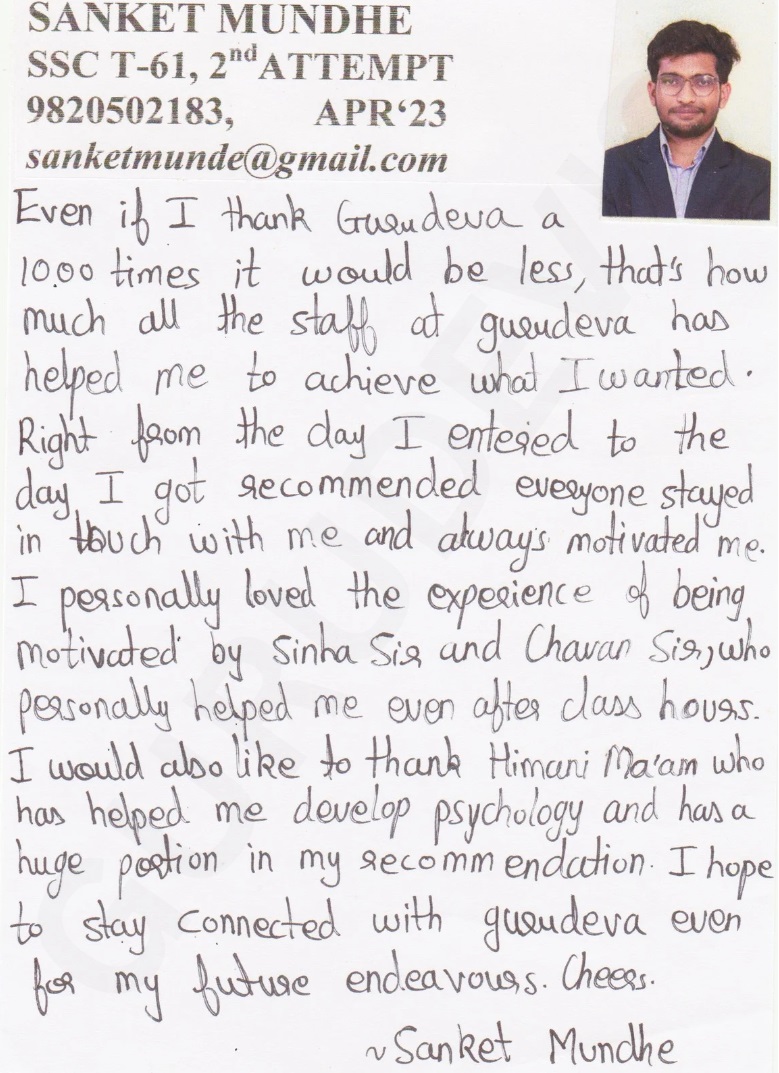 SANKET MUNDHE
SSC T-61, 2nd ATTEMPT
9820502183, APR‘23
sanketmunde@gmail.com
Even if I thank Gurudeva a
10.00 times it would be less, that's how
much all the staff at gurudeva has
helped me to achieve what I wanted.
Right from the day I entered to the
day I got recommended everyone stayed
in touch with me and always motivated me.
I personally loved the experience of being
motivated by Sinha Sir and Chavan Sir, who
personally helped me even after class hours.
I would also like to thank Himani Ma'am who
has helped me develop psychology and has a
huge portion in my recommendation. I hope
to stay connected with gurudeva even
for my future endeavours. Cheers.
~Sanket Mundhe